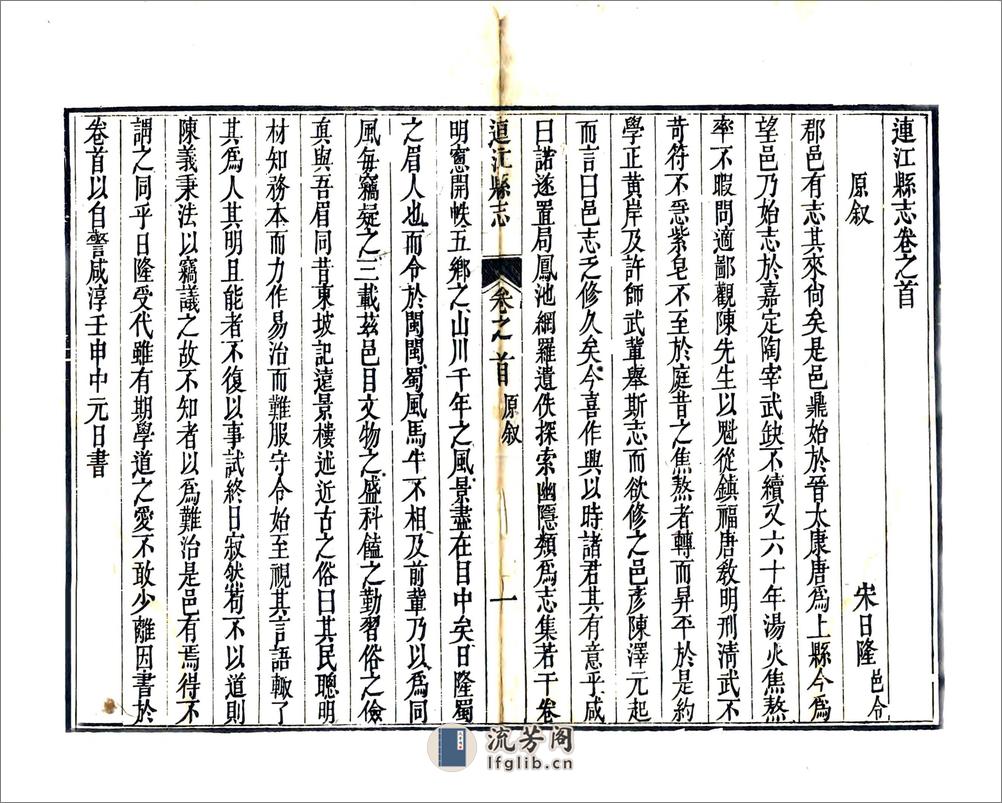 連江縣志卷之首
原叙
宋日隆邑令
郡邑有志其來尚矣是邑鼎始於晉太康唐爲上縣今爲
望邑乃始志於嘉定陶宰武缺不續又六十年湯火焦熬
率不暇問適鄙觀陳先生以魁從鎮福唐敎明刑淸武不
苛符不惡紫皂不至於庭昔之焦熬者轉而昇平於是約
學正黃岸及許師武輩舉斯志而欲修之邑彥陳澤元起
而言曰邑志之修久矣今喜作興以時諸君其有意乎咸
曰諾遂置局鳳池網羅遺佚探索幽隱類爲志集若干卷
連江縣志
卷之首
原叙
一
明窻開帙五鄉之山川千年之風景盡在目中矣日隆蜀
之眉人也而令於閩閩蜀風馬牛不相及前輩乃以爲同
風每竊疑之三載茲邑目文物之盛科饁之勤習俗之儉
眞與吾眉同昔東坡記遠景樓述近古之俗曰其民聰明
材知務本而力作易治而難服守令始至視其言語輙了
其爲人其明且能者不復以事試終日寂然苟不以道則
陳義秉法以竊議之故不知者以爲難治是邑有焉得不
謂之同乎日隆受代雖有期學道之愛不敢少離因書於
卷首以自警咸淳壬申中元日書
流芳阁
lfglib.cn